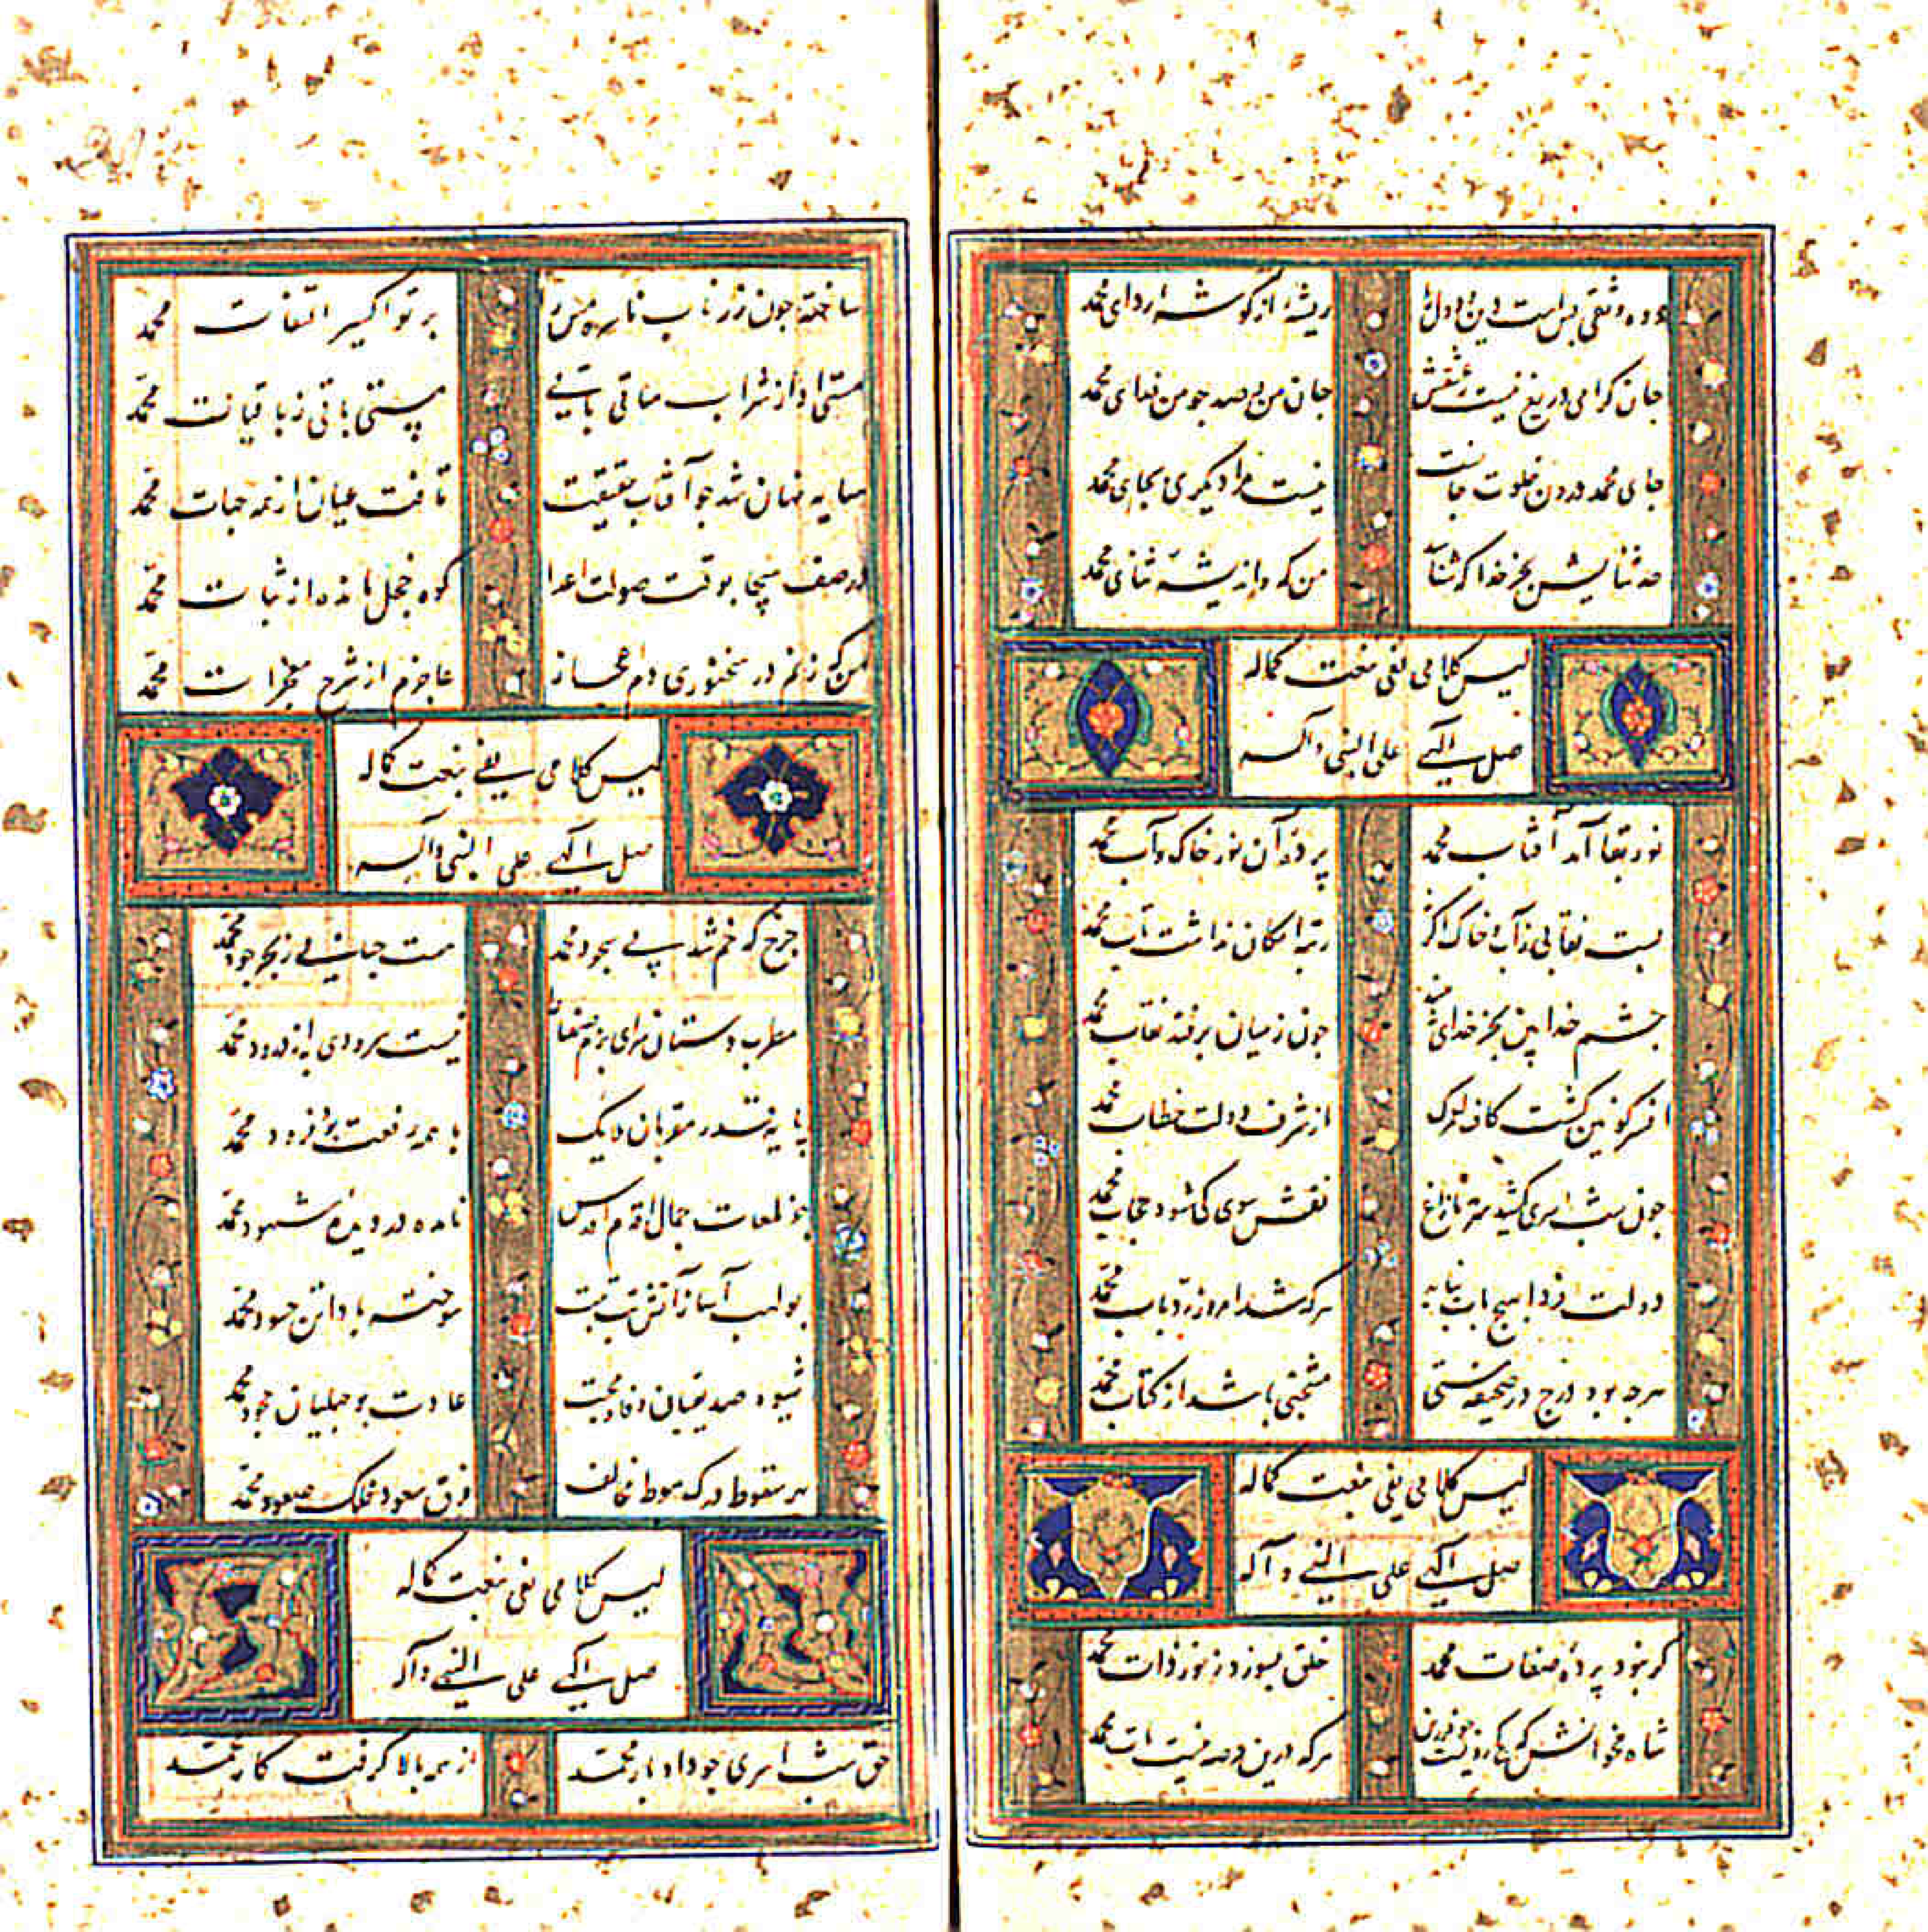 عروه وثقی بس است دین و دل را
ریشهٔ از گوشهٔ ردای محمد
جان گرامی دریغ نیست ز عشقش
جان من و صد چو من فدای محمد
جای محمد درون خلوت جانست
نیست مرا دیگری بجای محمد
حد ثنایش بجز خدا که شناسد
من که و اندیشهٔ ثنای محمد
لیس کلامی یفی بنعت کماله
صل الهی علی النبی و آله
نور بقا آمد آفتاب محمد
پردهٔ آن نور خاک و آب محمد
بست نقابی ز آب و خاک و اگرنه
رتبهٔ امکان نداشت تاب محمد
چشم خدا بین بجز خدای نبیند
چون ز میان برفتد نقاب محمد
افسر کونین گشت کاف لعمرک
از شرف دولت خطاب محمد
چون شب اسری کشید سرمهٔ مازاغ
نقش سوی کی شود حجاب محمد
دولت فردا ز هیچ باب نیابد
هر که نشد امروز رد باب محمد
هرچه بود درج در صحیفهٔ هستی
منتخبی باشد از کتاب محمد
لیس کلامی یفی بنعت کماله
صل الهی علی النبی و آله
گر نبود پردهٔ صفات محمد
خلق بسوزد ز نور ذات محمد
شاه مخوانش که
هر که درین عرصه نیست مات محمد
ساخته چون زر ناب ناسره مس را
پرتو اکسیر التفات محمد
مستی او از شراب ساقی باقی
هستی باقی ز باقیات محمد
سایه نهان شد چو آفتاب حقیقت
تافت عیان از همه جهات محمد
در صف هیجا بوقت صولت اعدا
کوه خجل مانده از ثبات محمد
من که زنم در سخنوری دم اعجاز
عاجزم از شرح معجزات محمد
لیس کلامی یفی بنعت کماله
صل الهی علی النبی و آله
چرخ که خم شد پی سجود محمد
هست حبابی ز بحر جود محمد
مطرب دستان سرای بزم صفا را
نیست سرودی به از درود محمد
پایهٔ قدر مقربان ملایک
با همه رفعت بود فرود محمد
جز لمعات جمال اقدم اقدس
نامده در دیدهٔ شهود محمد
بولهب آسا ز آتش تب تبت
سوخته بادا تن حسود محمد
شیوه صدیقیان وفا و محبت
عادت بوجهلیان جحود محمد
سر سقوط درک هبوط مخالف
فوق سعود فلک صعود محمد
لیس کلامی یفی بنعت کماله
صل الهی علی النبی و آله
حق شب اسری چو داد بار محمد
از همه بالا گرفت کار محمد